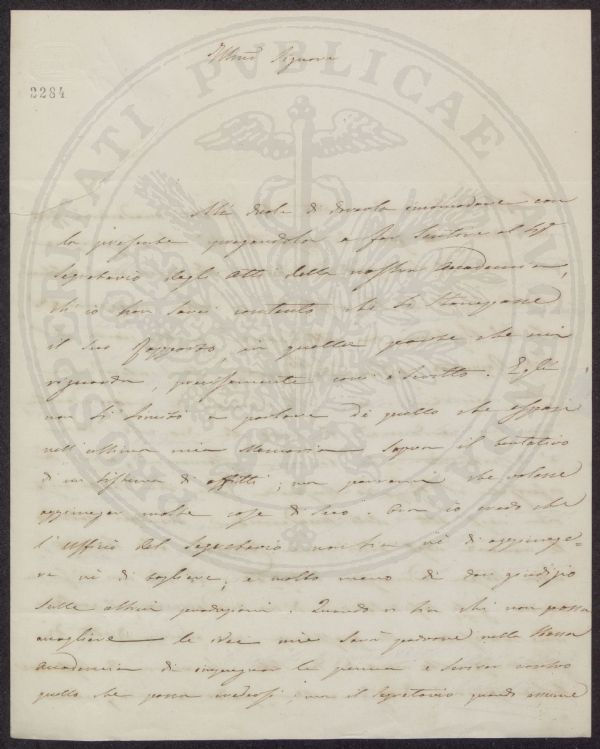 PROSPERITATI PVBLICAE AVGENDAE
Illmo Signore
2284
M'è duole di doverla incomodare con
la presente pregandola a far sentire al Sig.
Segretario degli Atti della nostra Accademia,
ch'io non sarei contento che si stampasse
il suo rapporto, in quella parte che mi
riguarda, precisamente com'è scritto. Egli
non si limitò a parlare di quello che esposi
nell'ultima mia Memoria sopra il tentativo
di un sistema di affitti; ma parvemi che volesse
aggiunger molte cose di suo. Ora io credo che
l'uffizio del Segretario non sia nè di aggiunge=
re nè di togliere, e molto meno di dar giudizio
sulle altrui produzioni. Quando vi sia chi non possa
accogliere le idee mie sarà padrone nella stessa
Accademia di impugnar la penna e scriver contro
quello che possa credersi, ma il Segretario quando assume